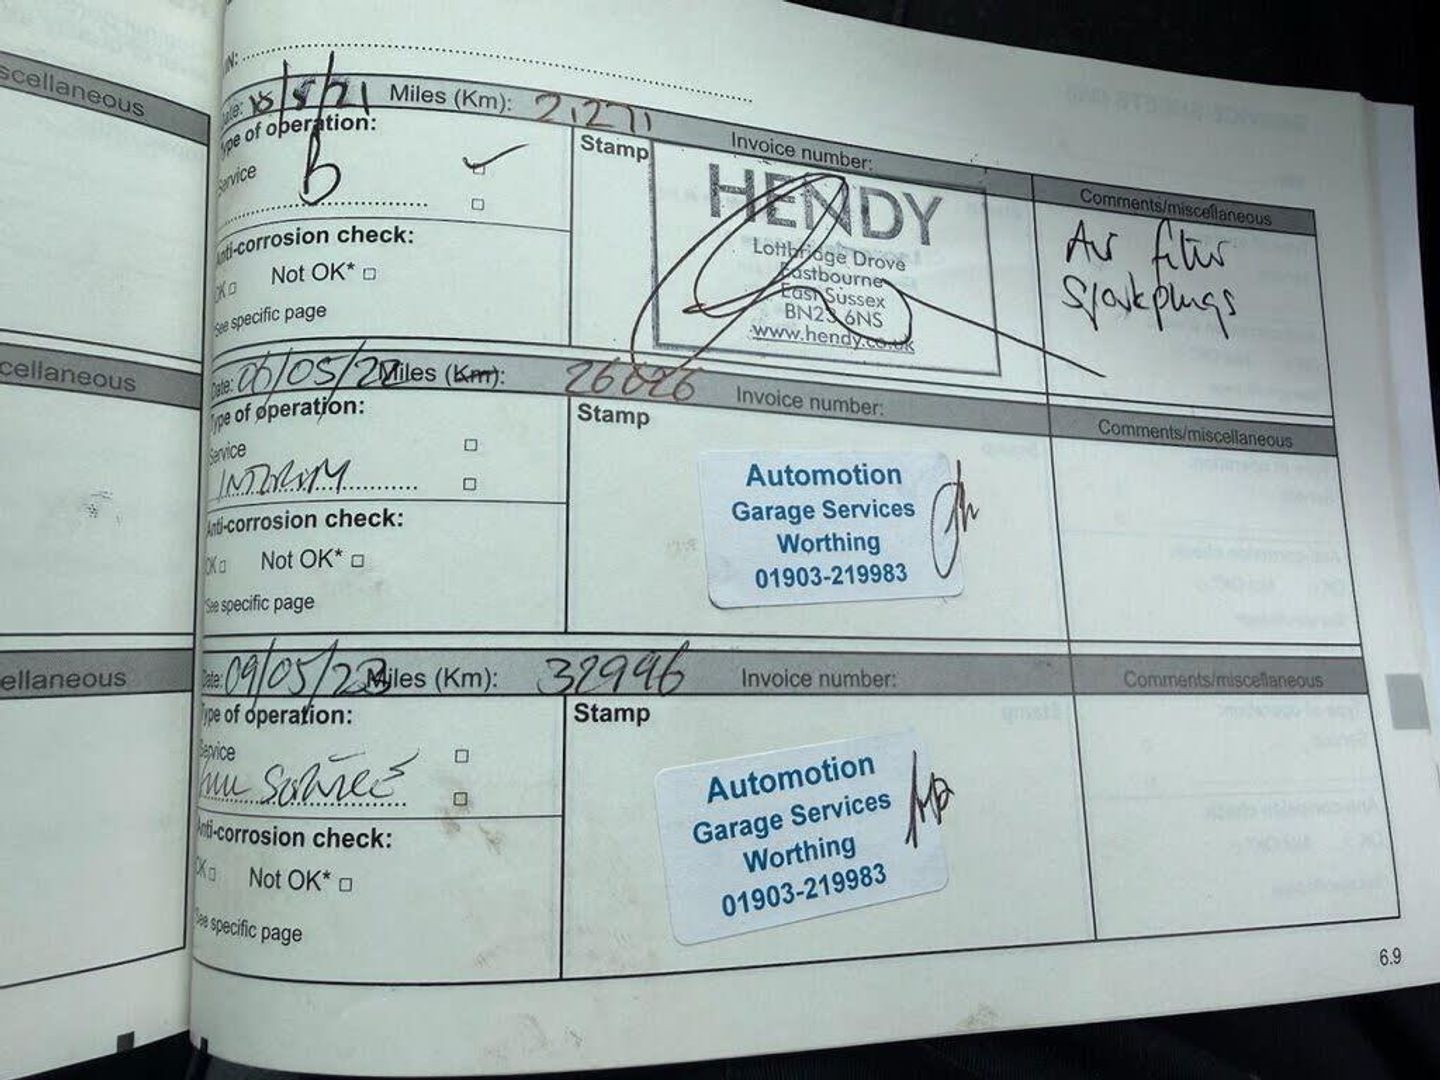 scellaneous
Date: 18/5/21 Miles (Km): 21271
Type of operation:
Service
B
Stamp
Invoice number:
HENDY
Lottbridge Drove
Eastbourne
East Sussex
BN23 6NS
www.hendy.co.uk
Comments/miscellaneous
Air filter
Sparkplugs
Anti-corrosion check:
OK Not OK*
*See specific page
cellaneous
Date: 06/05/22 Miles (Km): 26626
Type of operation:
Service
INTERIM
Stamp
Invoice number:
Automotion
Garage Services
Worthing
01903-219983
Comments/miscellaneous
Anti-corrosion check:
OK Not OK*
*See specific page
ellaneous
Date: 09/05/23 Miles (Km): 32996
Type of operation:
Service
SERVICE
Stamp
Invoice number:
Automotion
Garage Services
Worthing
01903-219983
Comments/miscellaneous
Anti-corrosion check:
OK Not OK*
*See specific page
6.9